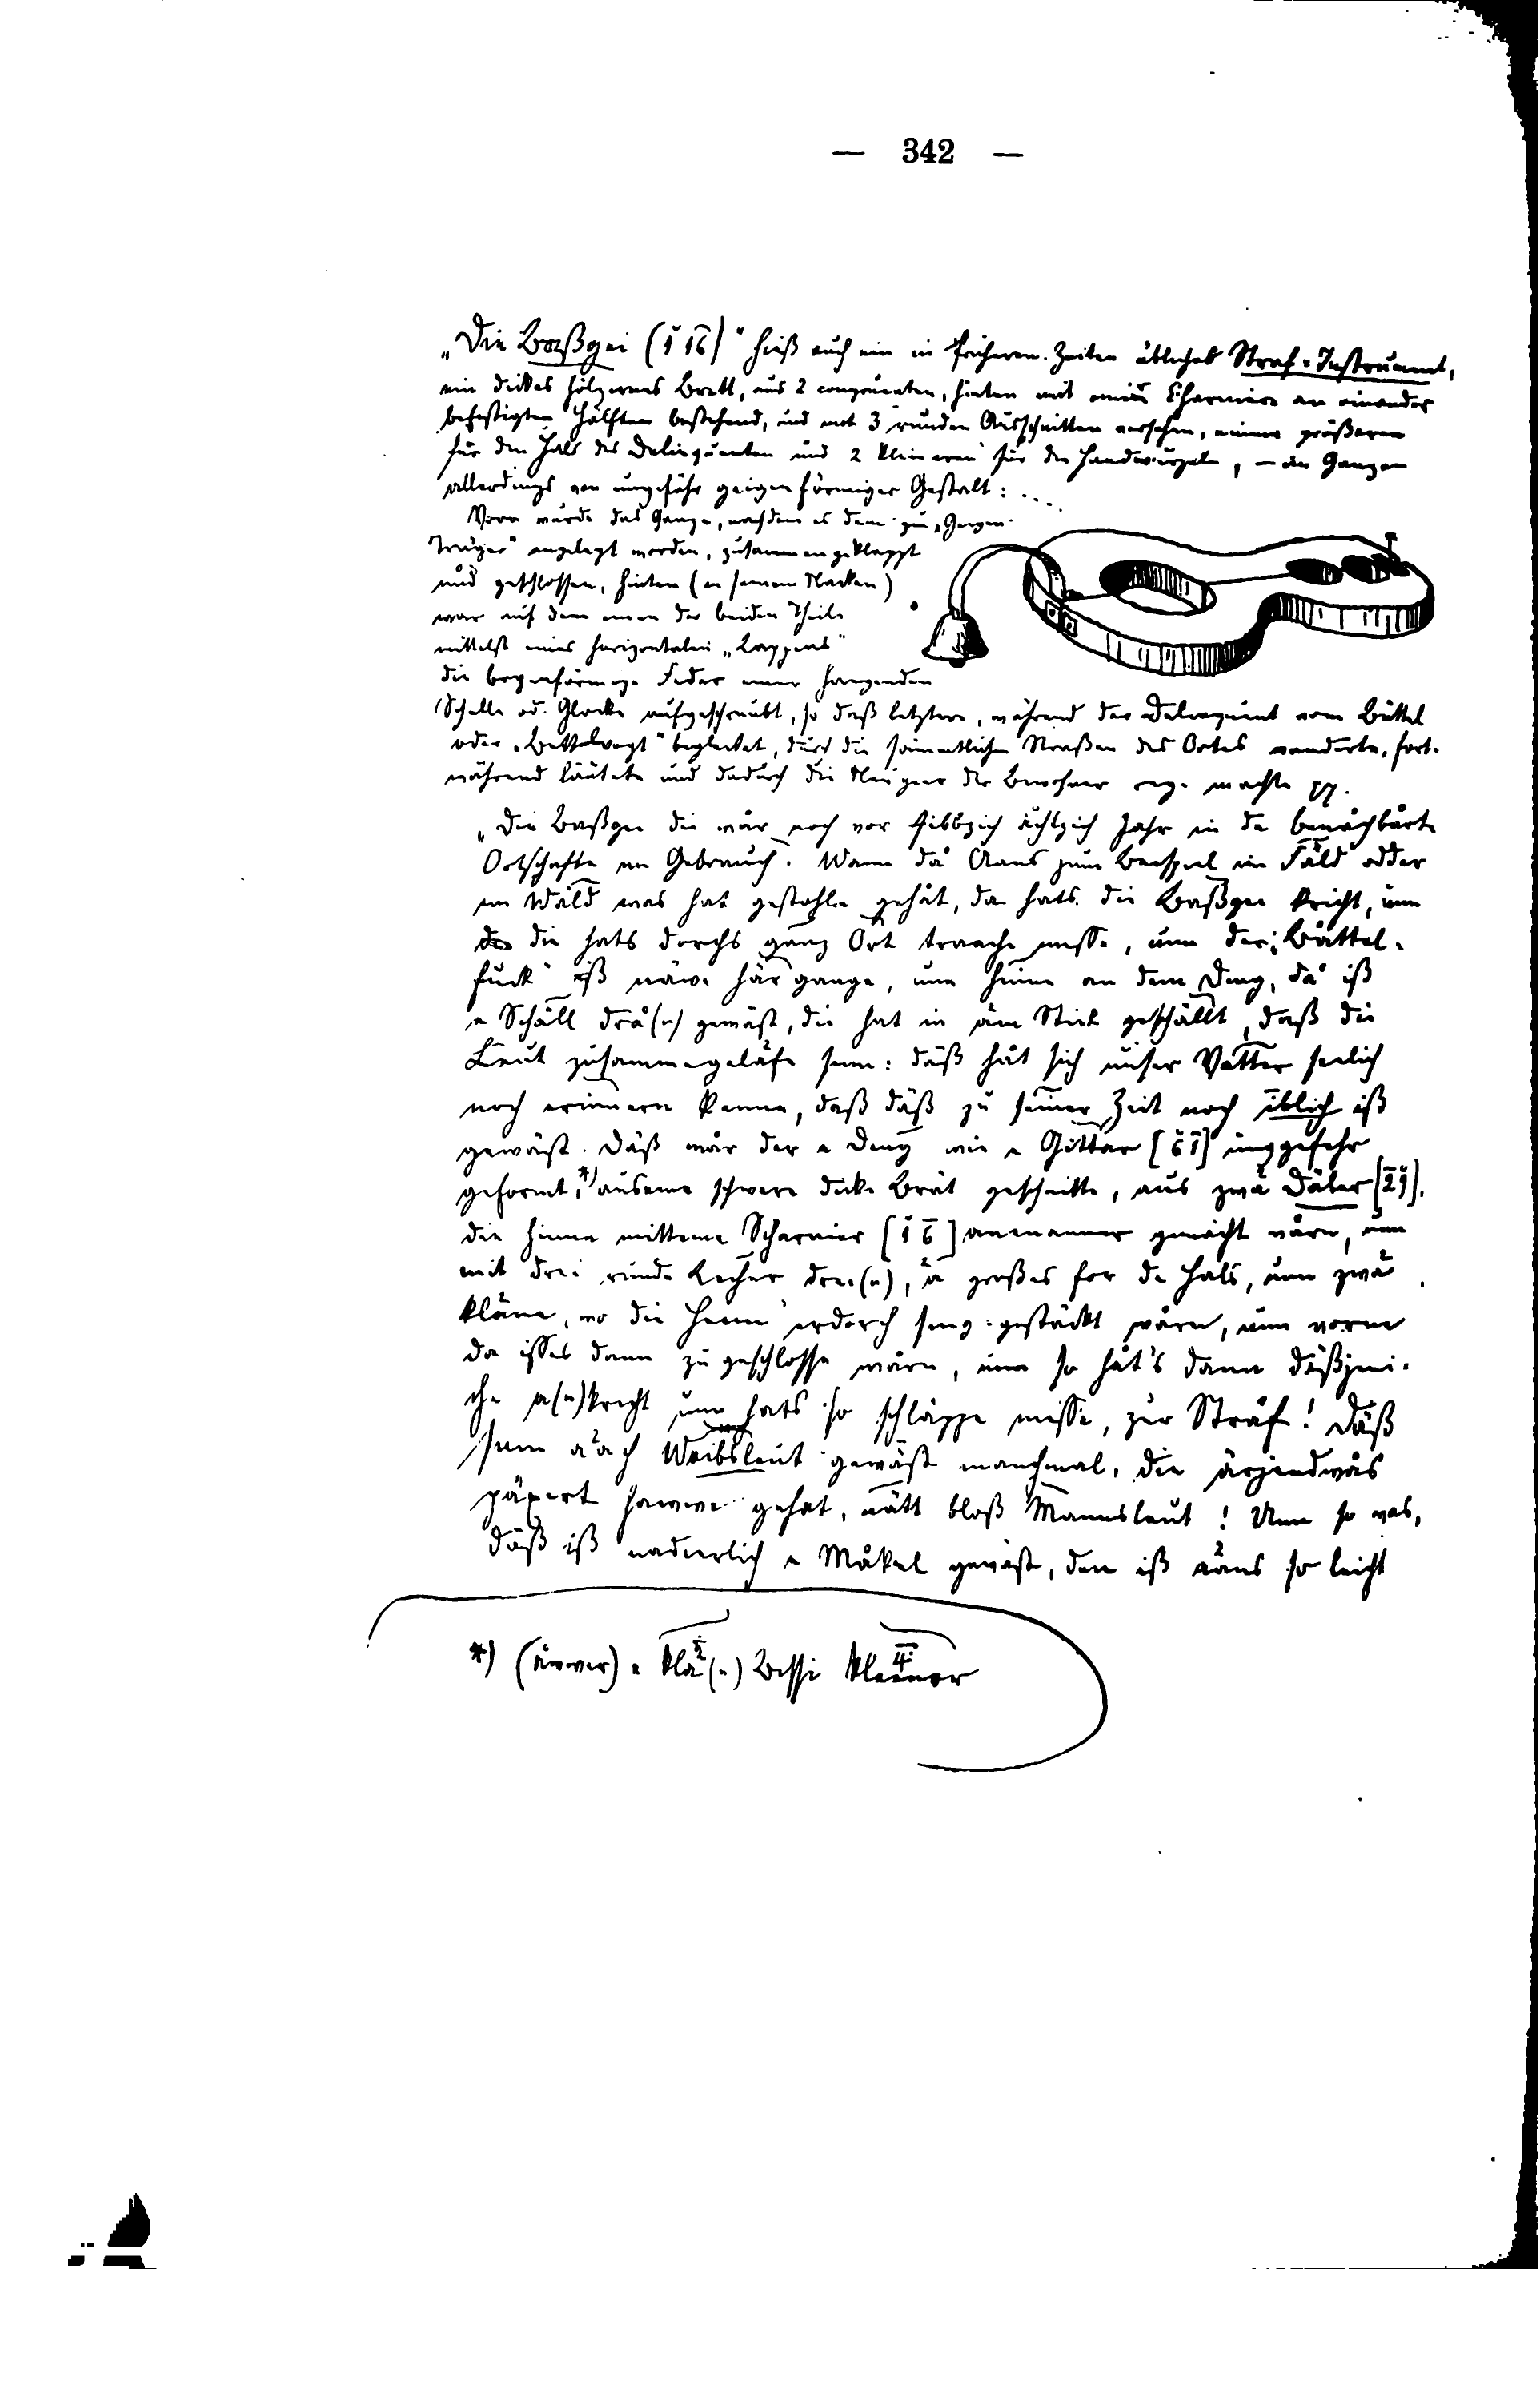 — 342 —
„Die Baßgei (1̆ 1̄6)" hieß auch ein in früheren Zeiten übliches Straf-Instrument,
ein dickes hölzernes Brett, aus 2 congruenten, hinten mit einem Charnier an einander
befestigten Hälften bestehend, und mit 3 runden Ausschnitten versehen, einem größeren
für den Hals des Delinquenten und 2 kleineren für die Handwurzeln, — im Ganzen
allerdings von ungefähr geigenförmiger Gestalt: ....
Vorn wurde das Ganze, nachdem es dem zum „Geigen-
Träger" angelegt worden, zusammengeklappt
und geschlossen, hinten (in seinem Nacken)
war auf dem einen der beiden Theile
mittelst eines horizontalen „Lappens"
die bogenförmige Feder einer hangenden
Schelle od. Glocke aufgeschraubt, so daß letztere, während der Delinquent vom Büttel
oder „Bettelvogt" begleitet, durch die sämmtlichen Straßen des Ortes wanderte, fort-
während läutete und dadurch die Neugier der Bewohner rege machte pp.
„Die Baßgei die wår noch vor sibbzich åchtzich Jahr in de benåchbårte
Ortschafte im Gebrauch. Wann då Aans zum Beispiel im Fäld odder
im Wåld was hat gestohle gehåt, da hats die Baßgei kricht, unn
die hats dorchs ganz Ort traache misse, unn der Bättel-
fuck iß näwe här gange, unn hinne an dem Ding, då iß
e Schäll drå(n) gewäst, die hat in äm Stick geschällt, daß die
Leut zusammegelåfe sinn: däß håt sich unser Vatter seelich
noch erinnern kenne, daß däß zu seiner Zeit noch iblich iß
gewäst. Däß wår der e Ding wie e Gittar [6̆ 1̄] unggefehr
geformt,*) auseme schwere dicke Brät geschnitte, aus zwä Däler [2̄9̆],
die hinne mitteme Scharnier [1̆ 6̄] anenanner gemåcht wårn, unn
mit drei runde Lecher drei(n), ä großes for de Hals, unn zwä
kläne, wo die Henn erdorch sinn gestäckt wårn, unn vorne
da isses dann zugeschlosse wårn, unn so håt's dann däßjeni-
che a(n)kricht unn hats so schläppe misse, zur Stråf! Däß
sinn aach Weibsleut gewäst manchmal, die ärjendwås
päxert hawwe gehat, nätt bloß Mannsleut! Unn so was,
däß iß nadierlich e Måkel gewäst, den iß aans so leicht
*) (åwwer) e klä(n) bessi kleiner